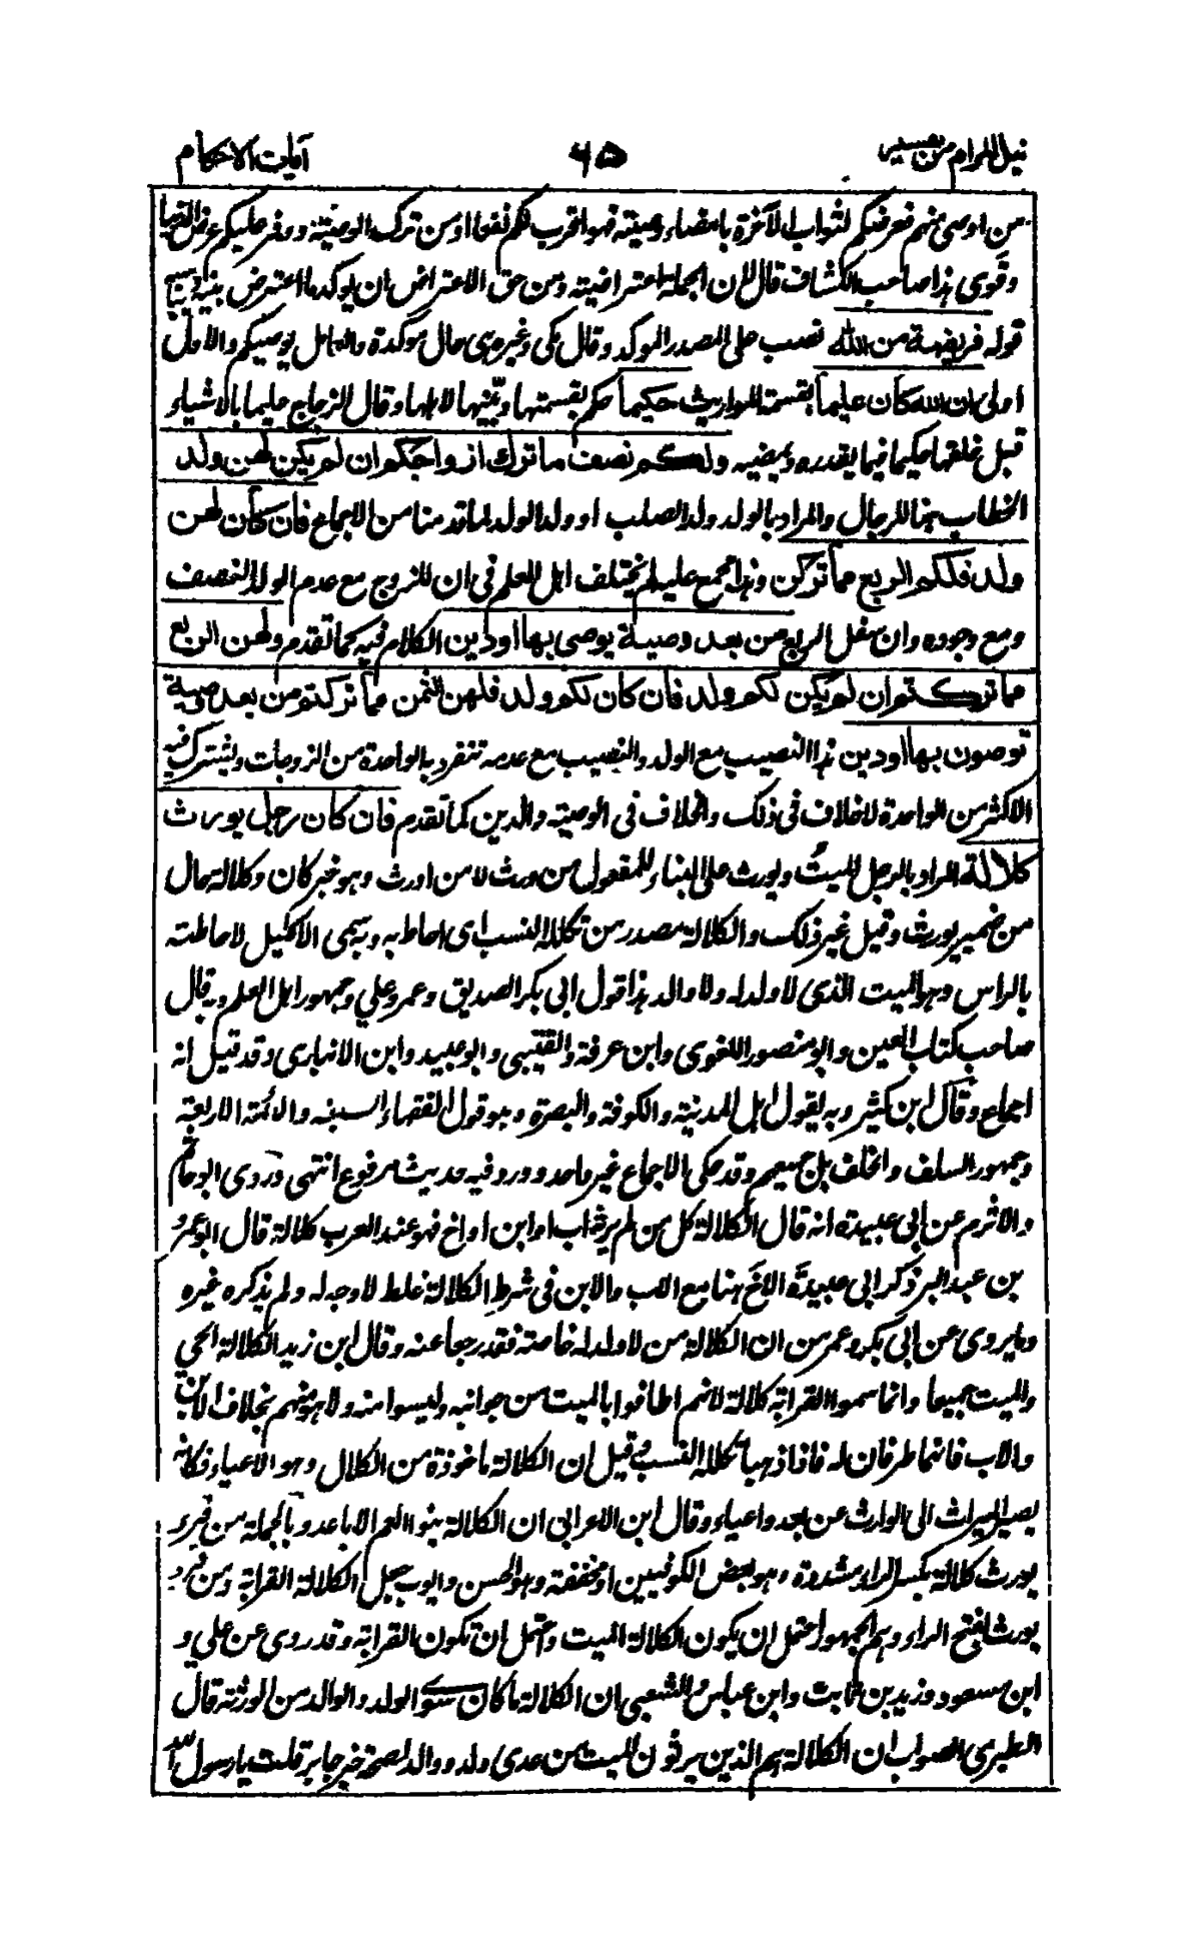 نيل المرام من تفسير ٦٥ آيات الاحكام
من اوصى منهم فعرضكم لثواب الآخرة بامضاء وصيته فهو اقرب لكم نفعا او من ترك الوصية ووفر عليكم عرض الدنيا
وقوى هذا صاحب الكشاف قال لان الجملة اعتراضية ومن حق الاعتراض ان يؤكد ما اعترض بينه ويناسب
قوله فريضة من الله نصب على المصدر المؤكد وقال مكى وغيره هى حال مؤكدة والعامل يوصيكم والاول
اولى ان الله كان عليما بقسمة المواريث حكيما حكم بقسمتها وبيّنها لاهلها وقال الزجاج عليما بالاشياء
قبل خلقها حكيما فيما يقدره ويمضيه ولكم نصف ما ترك ازواجكم ان لم يكن لهن ولد
الخطاب هنا للرجال والمراد بالولد ولد الصلب او ولد الولد لما قدمنا من الاجماع فان كان لهن
ولد فلكم الربع مما تركن وهذا مجمع عليه لم يختلف اهل العلم فى ان للزوج مع عدم الولد النصف
ومع وجوده وان سفل الربع من بعد وصية يوصى بها او دين الكلام فيه كما تقدم ولهن الربع
مما تركتم ان لم يكن لكم ولد فان كان لكم ولد فلهن الثمن مما تركتم من بعد وصية
توصون بها او دين هذا النصيب مع الولد والنصيب مع عدمه تنفرد به الواحدة من الزوجات ويشترك فيه
الاكثر من الواحدة لا خلاف فى ذلك والخلاف فى الوصية والدين كما تقدم فان كان رجل يورث
كلالة المراد بالرجل الميت ويورث على البناء للمفعول من ورث لا من اورث وهو خبر كان وكلالة حال
من ضمير يورث وقيل غير ذلك والكلالة مصدر من تكلله النسب اى احاط به وبه سمى الاكليل لاحاطته
بالراس وهو الميت الذى لا ولد له ولا والد هذا قول ابى بكر الصديق وعمر وعلي وجمهور اهل العلم وبه قال
صاحب كتاب العين وابو منصور اللغوى وابن عرفة والقتيبى وابو عبيد وابن الانبارى وقد قيل انه
اجماع وقال ابن كثير وبه يقول اهل المدينة والكوفة والبصرة وهو قول الفقهاء السبعة والائمة الاربعة
وجمهور السلف والخلف بل جميعهم وقد حكى الاجماع غير واحد وورد فيه حديث مرفوع انتهى وروى ابو حاتم
والاثرم عن ابى عبيدة انه قال الكلالة كل من لم يرثه اب او ابن او اخ فهو عند العرب كلالة قال ابو عمر
بن عبد البر ذكر ابى عبيدة الاخ هنا مع الاب والابن فى شرط الكلالة غلط لا وجه له ولم يذكره غيره
وما يروى عن ابى بكر وعمر من ان الكلالة من لا ولد له خاصة فقد رجعا عنه وقال ابن زيد الكلالة الحي
والميت جميعا وانما سموا القرابة كلالة لانهم اطافوا بالميت من جوانبه وليسوا منه ولا هو منهم بخلاف الابن
والاب فانهما طرفان له فاذا ذهبا تكلله النسب وقيل ان الكلالة ماخوذة من الكلال وهو الاعياء فكانه
يصير الميراث الى الوارث عن بعد واعياء وقال ابن الاعرابى ان الكلالة بنو العم الاباعد وبالجملة من قرء
يورث كلالة بكسر الراء مشددة وهو بعض الكوفيين او مخففة وهو الحسن وايوب جعل الكلالة القرابة ومن قرء
يورث بفتح الراء وهم الجمهور احتمل ان يكون الكلالة الميت واحتمل ان تكون القرابة وقد روى عن علي و
ابن مسعود وزيد بن ثابت وابن عباس والشعبى ان الكلالة ما كان سوى الولد والوالد من الورثة قال
الطبرى الصواب ان الكلالة هم الذين يرثون الميت من عدى ولده ووالده لصحة خبر جابر قلت يا رسول الله